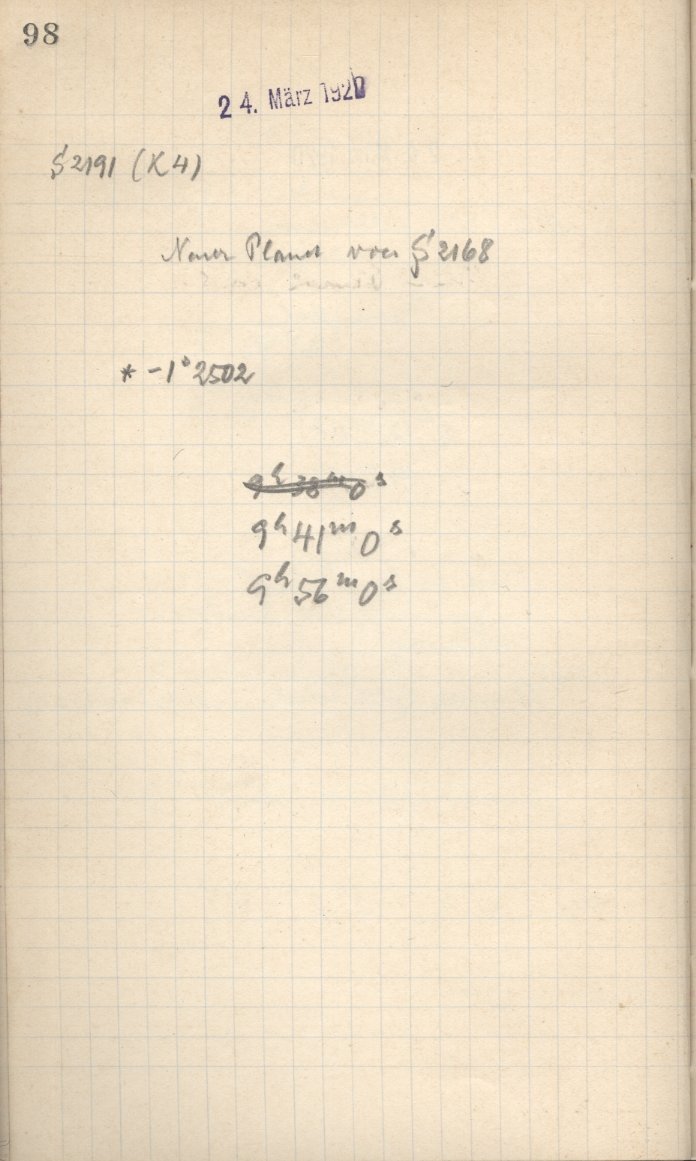 98
24. März 1920
§ 2191 (K4)
Neuer Planet von § 2168
* -1° 2502
9h 38m 0s
9h 41m 0s
9h 56m 0s